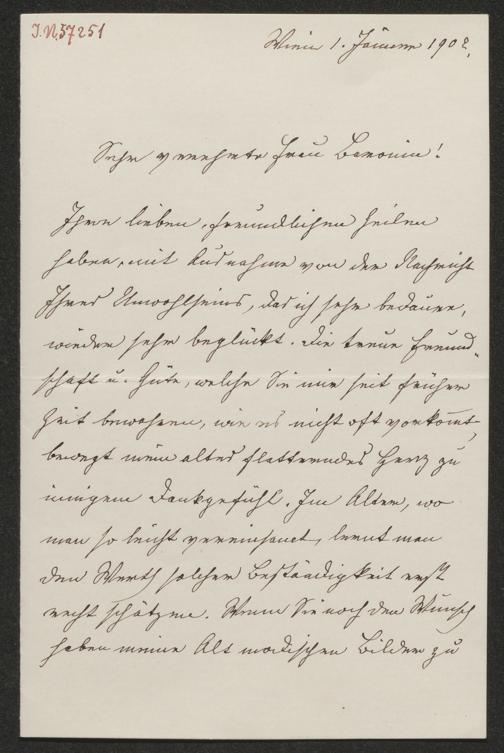 I.N. 57251
Wien 1. Jänner 1902.
Sehr verehrte Frau Baronin!
Ihre lieben, freundlichen Zeilen
haben, mit Ausnahme von der Nachricht
Ihres Unwohlseins, das ich sehr bedaure,
wieder sehr beglückt. Die treue Freund-
schaft u. Güte, welche Sie mir seit früher
Zeit bewahren, wie es nicht oft vorkommt,
bewegt mein altes flatterndes Herz zu
innigem Dankgefühl. Im Alter, wo
man so leicht vereinsamt, lernt man
den Werth solcher Beständigkeit erst
recht schätzen. Wenn Sie noch den Wunsch
haben meine Alt modischen Bilder zu